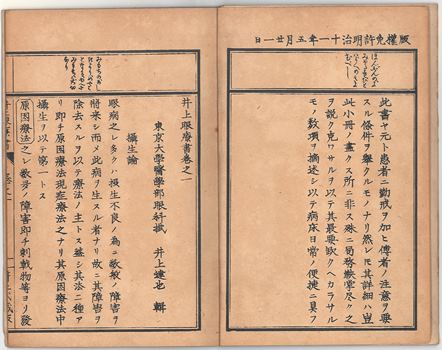 版權免許明治十一年五月廿一日
此書ヤ元ト患者ニ勸戒ヲ加ヒ傍者ノ注意ヲ要
スル條件ヲ擧クルモノナリ然レモ其詳細ハ豈
此小冊ノ盡ク所ニ非ス殊ニ局務
ヲ説ク克ワサルヲ以テ其最要欠クヘカラサル
モノ数項ヲ摘述シ以テ病床日常ノ便捷ニ具フ
井上眼療書巻之一
東京大学醫學部眼科掛 井上達也 輯
攝生論
眼病之レ多クハ攝生不良ノ為ニ数般ノ障害ヲ
將来シ而メ此病ヲ生スル者ナリ故ニ其障害ヲ
除去スルヲ以テ療法ノ主トス蓋シ其法二種ア
リ即チ原因療法現症療法之ナリ其原因療法中
攝生ヲ以テ第一トス
原因療法之レ数多ノ障害即チ刺戟物等ヨリ發